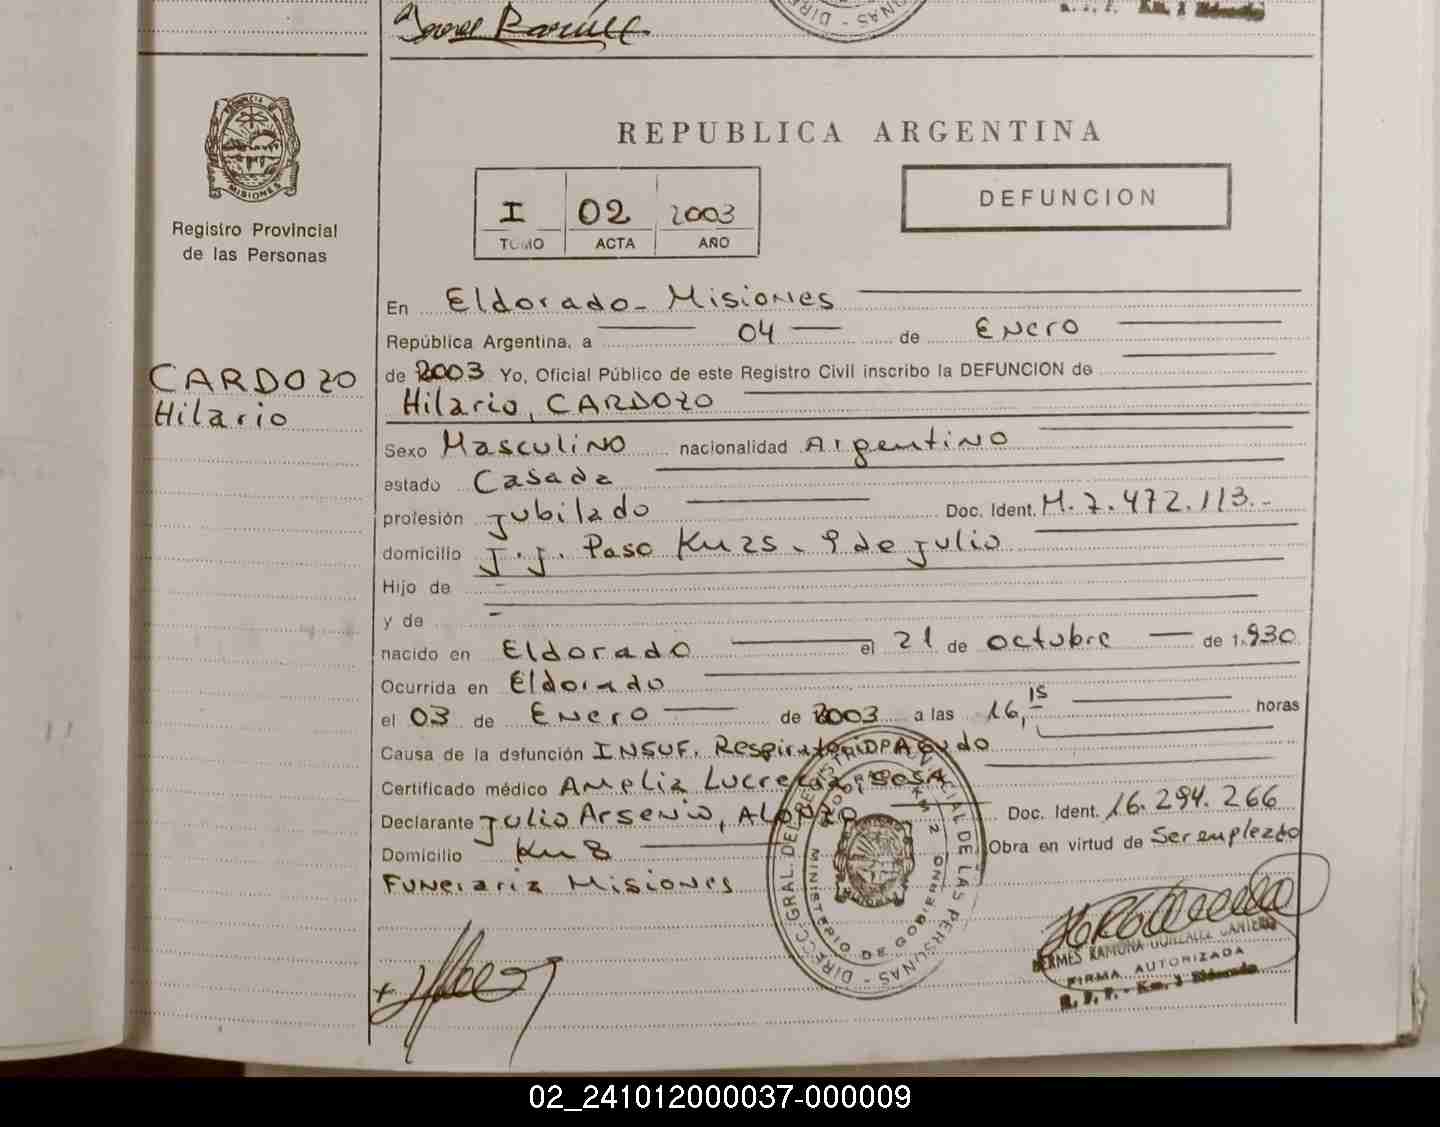 REPUBLICA ARGENTINA
PROVINCIA DE
MISIONES
Registro Provincial
de las Personas
I 02 2003
TOMO ACTA AÑO
DEFUNCION
CARDOZO
Hilario
En Eldorado - Misiones
República Argentina, a 04 de Enero
de 2003 Yo, Oficial Público de este Registro Civil inscribo la DEFUNCION de
Hilario, CARDOZO
Sexo Masculino nacionalidad Argentino
estado Casada
profesión jubilado Doc. Ident. M. 7.472.113.-
domicilio J.J. Paso Km 25. 9 de julio
Hijo de -
y de -
nacido en Eldorado el 21 de octubre de 1.930
Ocurrida en Eldorado
el 03 de Enero de 2003 a las 16,15 horas
Causa de la defunción INSUF. Respiratoria Agudo
Certificado médico Amelia Lucrecia, SOSA
Declarante Julio Arsenio, ALONZO Doc. Ident. 16.294.266
Domicilio Km 8 Obra en virtud de Ser empleado
Funeraria Misiones
DIRECC. GRAL. DEL REGISTRO PROVINCIAL DE LAS PERSONAS
MINISTERIO DE GOBIERNO
HERMES RAMONA GONZALEZ
FIRMA AUTORIZADA
R. P. P. - Km. 2 Eldorado
02_241012000037-000009